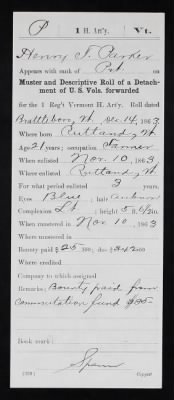 P 1 H. Art'y. Vt.
Henry T. Parker
Appears with rank of Pvt. on
Muster and Descriptive Roll of a Detach-
ment of U. S. Vols. forwarded
for the 1 Reg't Vermont H. Art'y. Roll dated
Brattleboro, Vt. Dec. 14, 1863.
Where born Rutland, Vt.
Age 21 years; occupation Farmer
When enlisted Nov. 10, 1863
Where enlisted Rutland, Vt.
For what period enlisted 3 years.
Eyes Blue; hair Auburn
Complexion Lt.; height 5 ft. in.
When mustered in Nov. 10, 1863
Where mustered in
Bounty paid $25 00; due $ 00
Where credited
Company to which assigned
Remarks: Bounty paid from
commutation fund
Book mark:
Copyist.